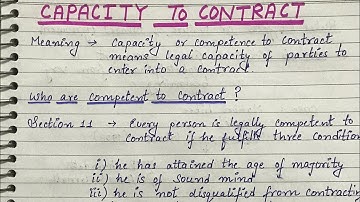 CAPACITY TO CONTRACT
Meaning → Capacity or competence to contract
means legal capacity of parties to
enter into a contract
Who are competent to contract ?
Section 11 → Every person is legally competent to
contract if he fulfills three condition
i) he has attained the age of majority
ii) he is of sound mind
iii) he is not disqualified from contracti